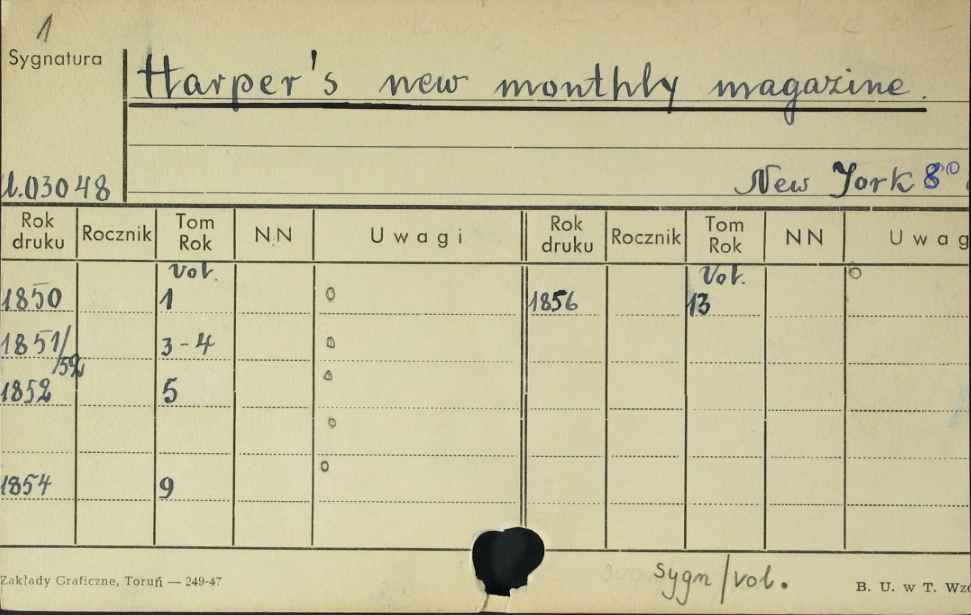 1
Sygnatura
Harper's new monthly magazine.
U.03048
New York 8°
Rok druku Rocznik Tom Rok NN Uwagi Rok druku Rocznik Tom Rok NN Uwag
Vol. Vol.
1850 1 1856 13
1851/52 3-4
1852 5
1854 9
Zakłady Graficzne, Toruń — 249-47
sygn/vol.
B. U. w T. Wzó